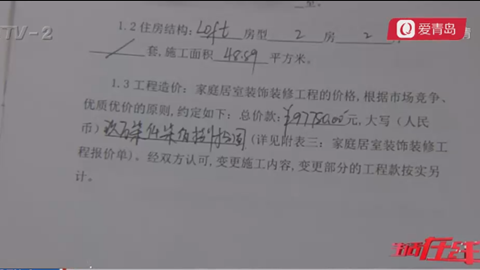 TV-2
爱青岛
1.2 住房结构：Loft 房型 2 房 2
套，施工面积 48.89 平方米。
1.3 工程造价：家庭居室装饰装修工程的价格，根据市场竞争、
优质优价的原则，约定如下：总价款：¥97780.00元，大写（人民
币）（详见附表三：家庭居室装饰装修工
程报价单）。经双方认可，变更施工内容，变更部分的工程款按实另
计。
生活在线